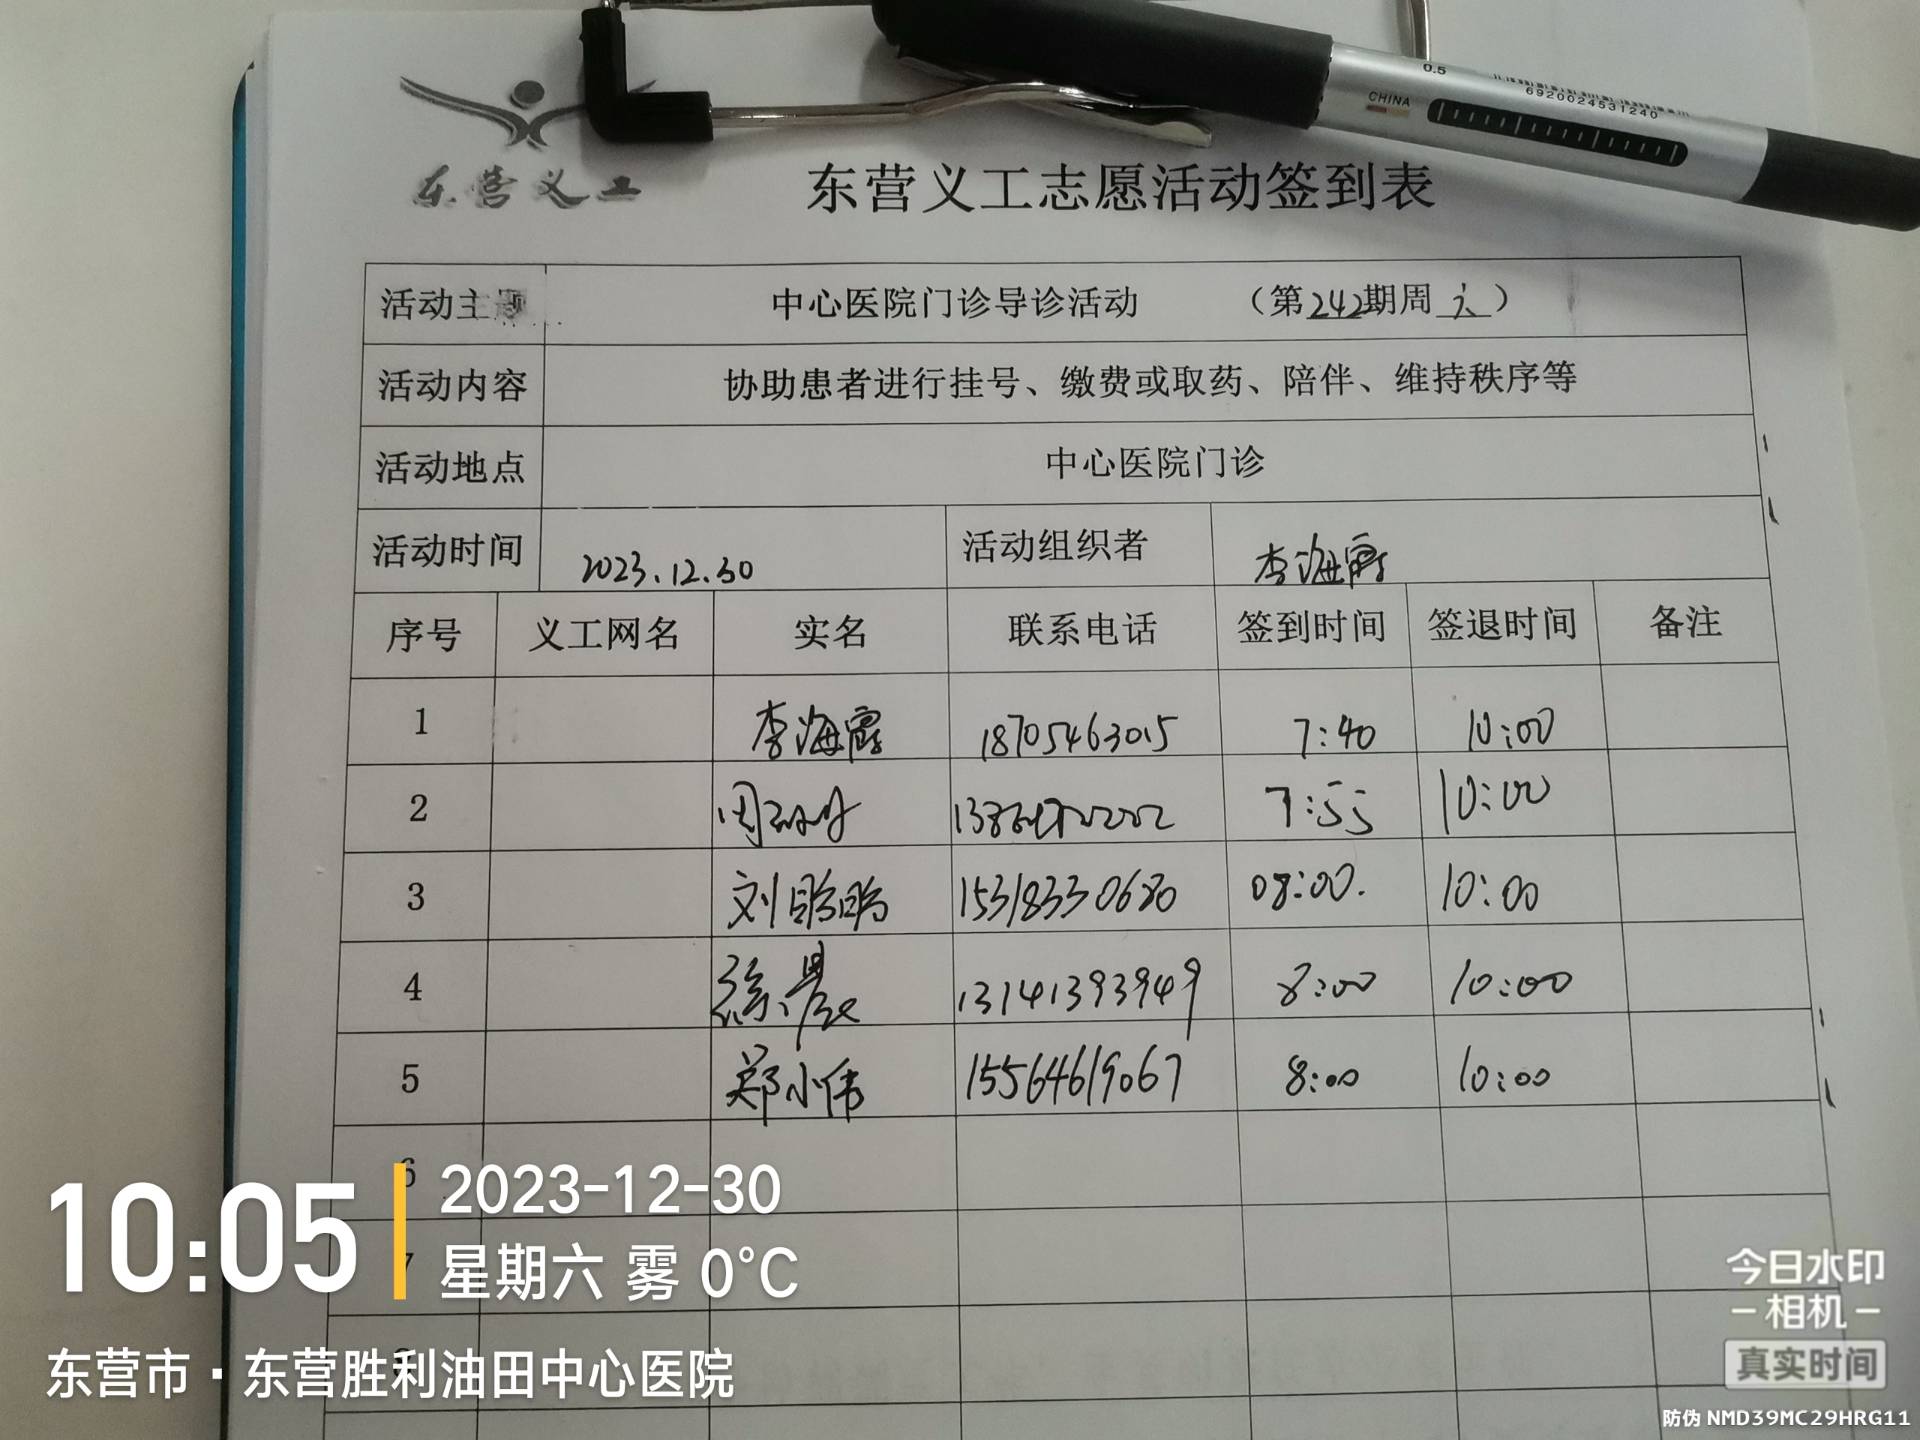 0.5
CHINA
6920024531240
东营义工
东营义工志愿活动签到表
活动主题 中心医院门诊导诊活动 （第242期周六）
活动内容 协助患者进行挂号、缴费或取药、陪伴、维持秩序等
活动地点 中心医院门诊
活动时间 2023.12.30 活动组织者 李海霞
序号 义工网名 实名 联系电话 签到时间 签退时间 备注
1 李海霞 18705463015 7:40 10:00
2 周 7:55 10:00
3 刘 15318330680 08:00. 10:00
4 徐晨 13141393949 8:00 10:00
5 郑小伟 15564619067 8:00 10:00
6
7
10:05
2023-12-30
星期六 雾 0°C
东营市·东营胜利油田中心医院
今日水印
相机
真实时间
防伪 NMD39MC29HRG11